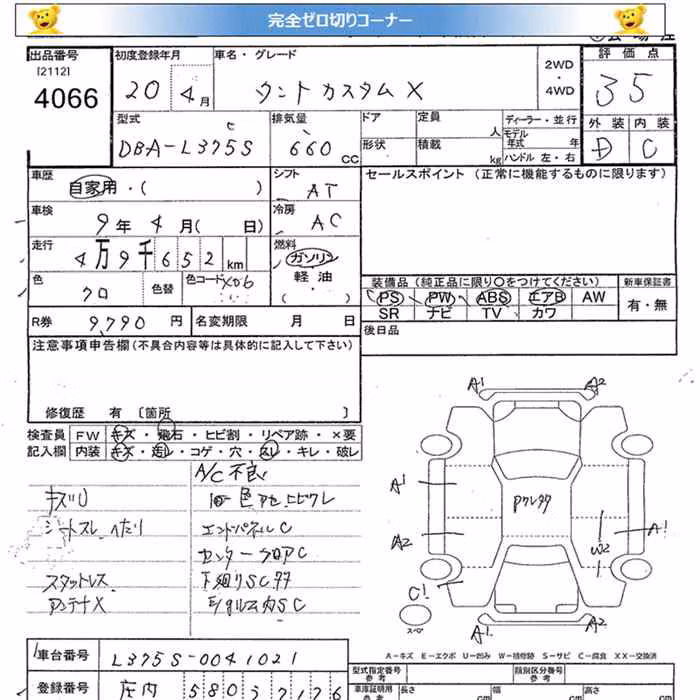 完全ゼロ切りコーナー
出品番号
[2112]
4066
初度登録年月
20 4月
車名・グレード
タントカスタム X
2WD
・
4WD
評価点
35
型式
DBA-L375S
排気量
660 CC
ドア
定員 人
形状
積載 kg
ディーラー・並行
モデル年式 年
ハンドル 左・右
外装 内装
D C
車歴
自家用・( )
シフト
AT
セールスポイント (正常に機能するものに限ります)
車検
9年 4月( 日)
冷房
AC
走行
4万9千652 km
燃料
ガソリン
軽油
・( )
色
クロ
色替
色コード X06
装備品 (純正品に限り○をつけてください)
新車保証書
PS PW ABS エアB AW
SR ナビ TV カワ
有・無
R券 9,790 円
名変期限 月 日
後日品
注意事項申告欄 (不具合内容等は具体的に記入して下さい)
修復歴 有 [箇所 ]
検査員 FW キズ・飛石・ヒビ割・リペア跡・×要
記入欄 内装 キズ・汚レ・コゲ・穴・スレ・キレ・破レ
A/C 不良
キズU
シートスレ ヘたり
エンドパネルC
センターフロアC
スタットレス
アンテナX
下廻りSCサヤ
A1 A2
A1
Pクレタタ
A2
W2
A1
C1
スペア
A1 A2
A-キズ E-エクボ U-凹み W-補修跡 S-サビ C-腐食 XX-交換済
車台番号 L375S-0041021
型式指定番号
参考
類別区分番号
参考
登録番号 庄内 580
車庫証明用
参考
長さ cm
幅 cm
高さ cm